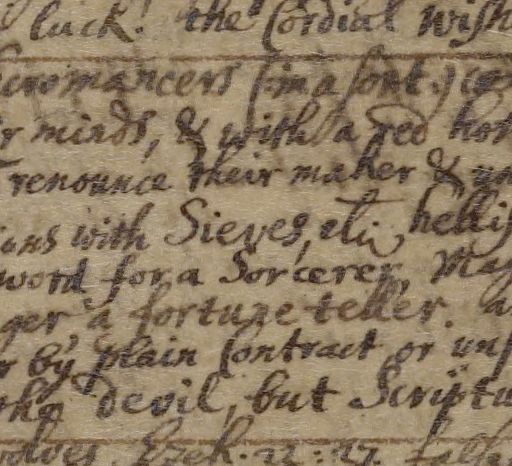 luck! the Cordial wish
cromancers (in a sort)
r minds, & with a red hot
renounce their maker &
ians with Sieves, etc hellis
word for a Sorcerer, Mag
ger a fortune teller. a
r by plain Contract or
the devil, but Scriptu
Ezek. 22: 27